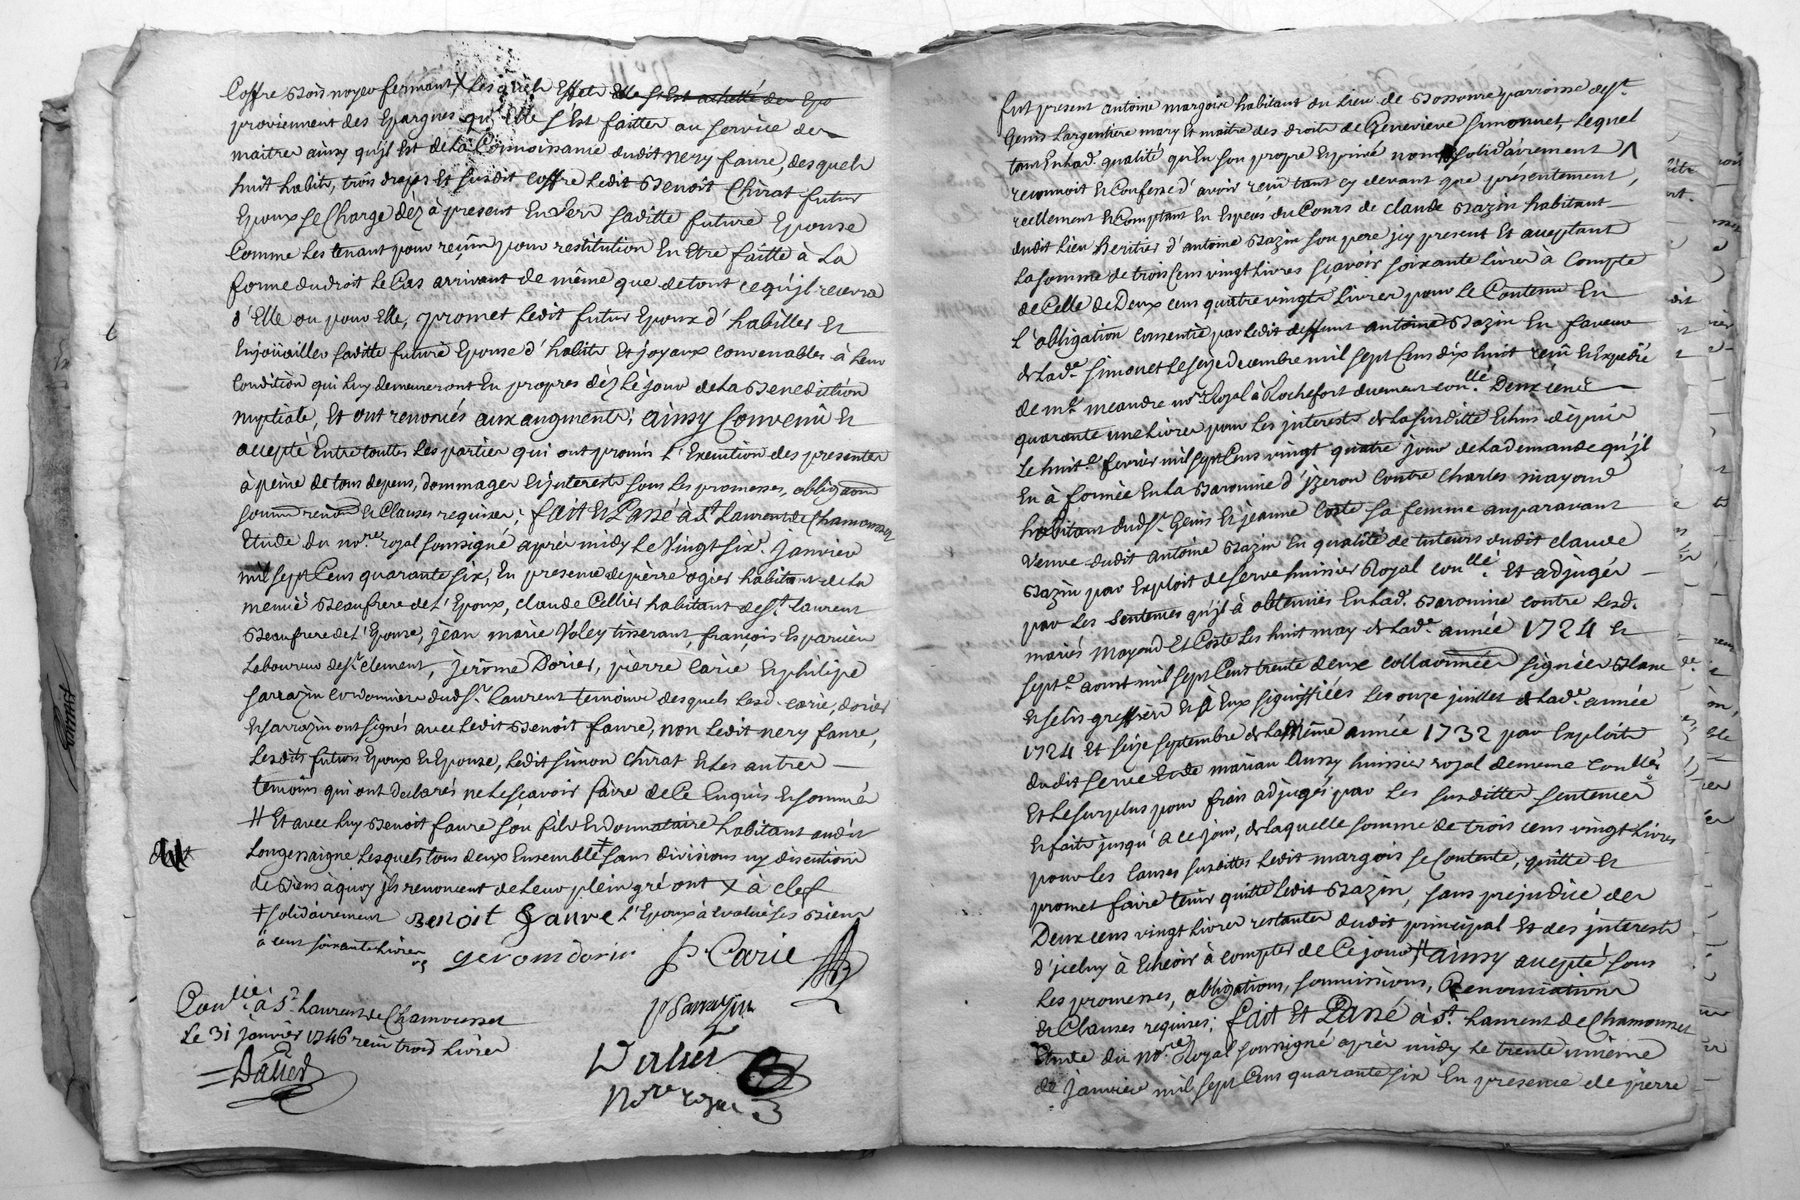 Coffre Bois noyer fermant X Lesquels Effets Elle s'Est achetté des Epo
proviennent des Epargnes qu'Elle s'Est faittes au service des
maitres ainsy qu'jl Est de La Connoissance dudit nery faure, desquels
huit habits, trois draps Et susdit coffre Ledit Benoit Chirat futur
Epoux se Charge dèz à present Envers saditte future Epouse
Comme Les tenant pour reçûs pour restitution En Etre faitte à La
forme du droit Le Cas arrivant de même que de tout ce qu'jl recevra
d'Elle ou pour Elle, promet Ledit futur Epoux d'habiller Et
Enjoüailler saditte future Epouse d'habits Et joyaux convenables à Leur
Condition qui Luy demeureront En propres dèz Le jour de La Benediction
nuptiale, Et ont renoncés aux augments; ainsy Convenû Et
accepté Entre touttes Les parties qui ont promis L'Execution des presentes
à peine de tous depens, dommages Et jnterests sous Les promesses, obligaons
soumons renons Et Clauses requises; fait Et Passé à St Laurent de Chamousset
Etude du nore royal soussigné aprés midy Le Vingt six janvier
mil sept Cens quarante six, En presence de pierre ogier habitant de La
menüe Beaufrere de L'Epoux, claude Cellier habitant de St Laurent
Beaufrere de L'Epouse, jean marie Voley tisserant, françois Esparcieu
Laboureur de St clement, jerôme Dorier, pierre Carie, Et philipe
sarrazin Cordonniers dudt St Laurent temoins desquels Lesd. carie, dorier
Et sarrazin ont signés avec Ledit Benoit faure, non Ledit nery faure,
Lesdits futurs Epoux Et Epouse, Ledit simon Chirat Et Les autres
temoins qui ont declarés ne Le sçavoir faire de Ce Enquis Et sommés
# Et avec Luy Benoit faure son fils Et donnataire habitant audit
Longessaigne Lesquels tous deux Ensemble ‡ sans divisions ny discution
de Biens à quoy jls renoncent de Leur plein gré ont X à clef
‡ solidairement Benoit faure L'Epoux à Evalué ses Biens
à cent soixante Livres
gerom dorier P Carie
P Sarrazin
Coullé à St Laurent de Chamousset
Le 31 janvier 1746 reçû trois Livres
Nore royal
fut present antoine margois habitant du Lieu de Bossonne parroisse de St
Genis L'argentiere mary Et maitre des droits de Genevieve simonnet, Lequel
tant En lad. qualité qu'En son propre Et privé nom solidairement
reconnoit Et Confesse d'avoir reçû tant cy devant que presentement,
reellement Et Comptant En Especes du Cours de claude Bazin habitant
dudit Lieu heritier d'antoine Bazin son pere jcy present Et acceptant
La somme de trois Cens vingt Livres sçavoir soixante Livres à Compte
de Celle de Deux cens quatre vingts Livres pour Le Contenu En
L'obligation consentie par Ledit deffunt antoine Bazin En faveur
de Lade simonet Le seize decembre mil sept Cens dix huit reçû Et Expedié
de me meandre nore Royal à Rochefort duement coullé Deux cens
quarante une Livres pour Les jnterests de La susditte Echus dépuis
Le huite fevrier mil sept Cens vingt quatre jour de La demande qu'jl
En à formée En La Baronnie d'jzeron contre Charles mayoud
habitant dudt St Genis Et jeanne Coste sa femme auparavant
Veuve dudit antoine Bazin En qualité de tuteurs dudit claude
Bazin par Exploit de serve huissier Royal coullé Et adjugés
par Les sentences qu'jl à obtenües En Lad. Baronnie contre Lesd.
mariés Mayoud Et Coste Les huit may de Lade année 1724 Et
septe aoust mil sept Cens trente deux collationnées signées Blanc
Et selis greffiers Et à Eux signiffiées Les onze juillet de Lade année
1724 Et seize septembre de La même année 1732 par Exploits
dudit serve Et de marian aussy huissier royal de meme coullés
Et Le surplus pour frais adjugés par Les susdittes sentences
Et faits jusqu'à ce jour, de Laquelle somme de trois cens vingt Livres
pour Les causes susdittes Ledit margois se Contente, quitte Et
promet faire tenir quitte Ledit Bazin, sans prejudice des
Deux cens vingt Livres restantes dudit principal Et des jnterests
d'jceluy à Echeoir à compter de Ce jour # ainsy accepté sous
Les promesses, obligations, soumissions, Renonciations
Et Clauses requises; fait Et Passé à St Laurent de Chamousset
Etude du nore Royal soussigné aprés midy Le trente unième
de janvier mil sept Cens quarante six En presence de pierre